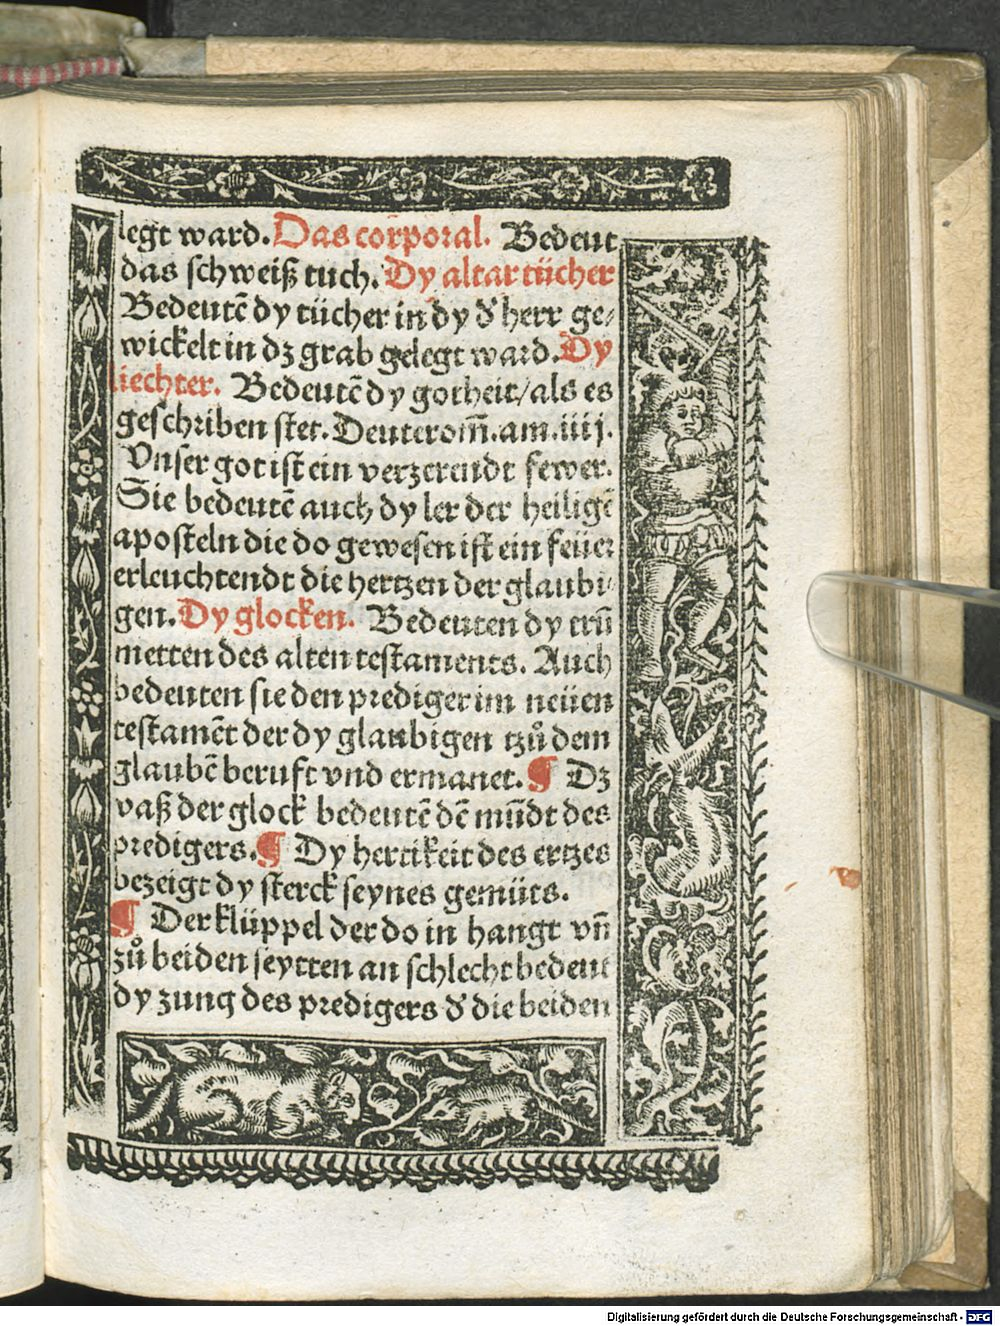 legt ward. Das corporal. Bedeut
das schweiß tuch. Dy altar tücher
Bedeutē dy tücher in dy d' herr ge⸗
wickelt in dz grab gelegt ward. Dy
liechter. Bedeutē dy gotheit/als es
geschriben stet. Deuterom̄.am.iiij.
Vnser got ist ein verzerendt fewer.
Sie bedeutē auch dy ler der heiligē
aposteln die do gewesen ist ein feüer
erleuchtendt die hertzen der glaubi⸗
gen. Dy glocken. Bedeuten dy trū
metten des alten testaments. Auch
bedeuten sie den prediger im neüen
testamēt der dy glaubigen tzů dem
glaubē beruft vnd ermanet. ¶ Dz
vaß der glock bedeutē dē mūdt des
predigers. ¶ Dy hertikeit des ertzes
bezeigt dy sterck seynes gemüts.
¶ Der klüppel der do in hangt vn̄
zů beiden seytten an schlecht bedeut
dy zung des predigers d' die beiden
Digitalisierung gefördert durch die Deutsche Forschungsgemeinschaft - DFG